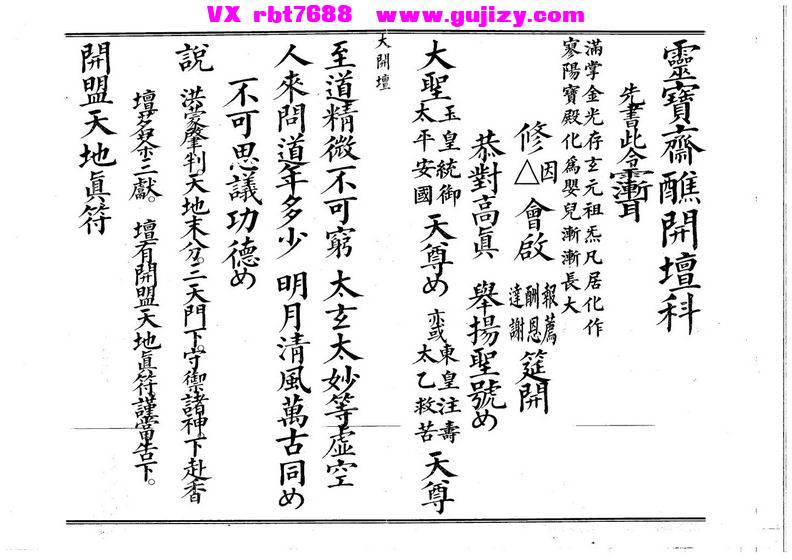 VX rbt7688 www.gujizy.com
靈寶齋醮開壇科
先書此
滿掌金光存玄元祖炁凡居化作
寥陽寶殿化為嬰兒漸漸長大
修△因會啟 報薦酬恩達謝 筵開
恭對高真 舉揚聖號
大聖 玉皇統御 太平安國 天尊 亦或 東皇注壽 太乙救苦 天尊
大開壇
至道精微不可窮 太玄太妙等虛空
人來問道年多少 明月清風萬古同
不可思議功德
說 洪蒙肇判。天地未分。三天門下。守禦諸神。下赴香
壇。三獻。 壇有開盟天地真符。謹當告下。
開盟天地眞符